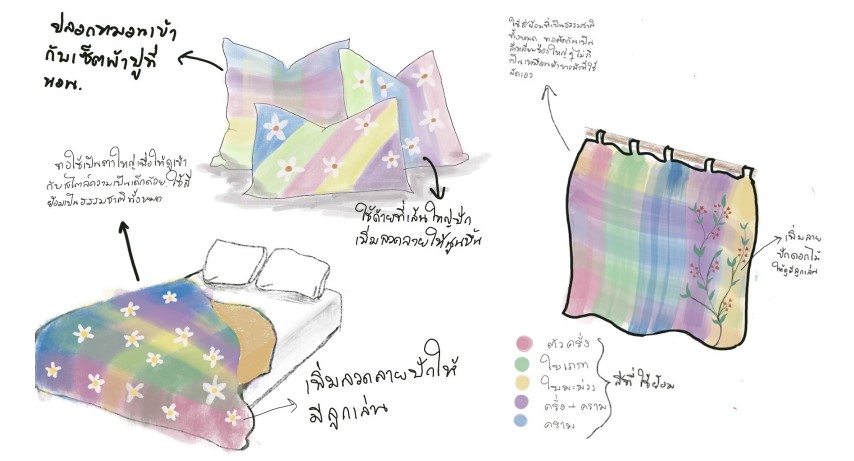 ปลอกหมอนเข้า
กับเซ็ตผ้าปูที่
นอน.
ทอใช้เป็นตาใหญ่เพื่อให้ดูเข้า
กับสไตล์ความเป็นเด็กด้วย ใช้สี
ย้อมเป็นธรรมชาติทั้งหมด
ใช้ด้ายที่เส้นใหญ่ปัก
เพิ่มลวดลายให้นูนขึ้น
เพิ่มลวดลายปักให้
มีลูกเล่น
ใช้สีย้อมที่เป็นธรรมชาติ
ทั้งหมด ทอตัดกันเป็น
สี่เหลี่ยมช่องใหญ่ๆ
เพิ่มลาย
ปักดอกไม้
ให้ดูมีลูกเล่น
ตัวครั่ง
ใบมะม่วง
ครั่ง + คราม
คราม
สีที่ใช้ย้อม